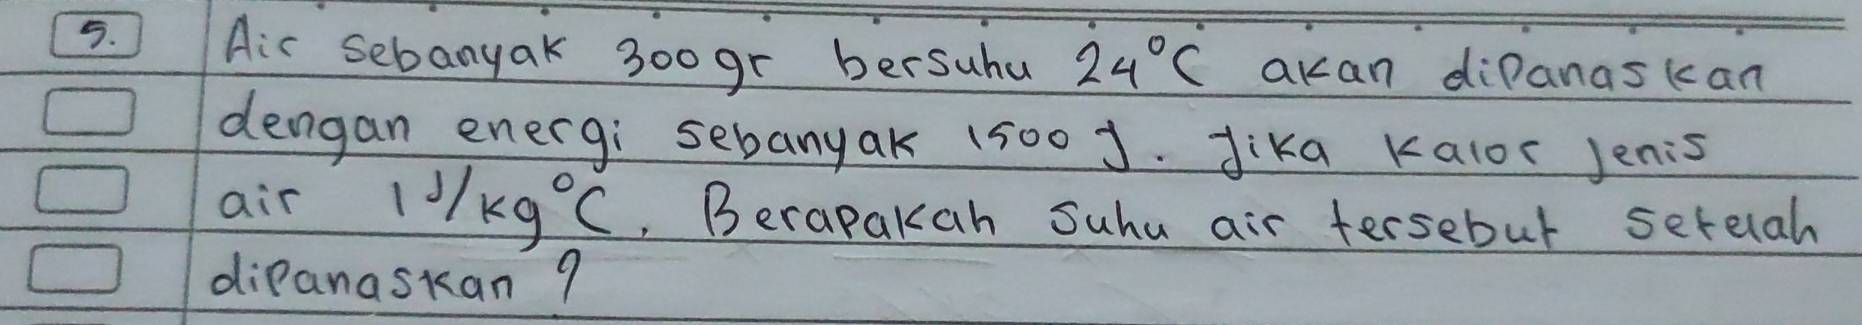 5. Air sebanyak 300 gr bersuhu 24°C akan dipanaskan
dengan energi sebanyak 1500 J. Jika kalor jenis
air 1 J/kg°C, Berapakah suhu air tersebut setelah
dipanaskan ?